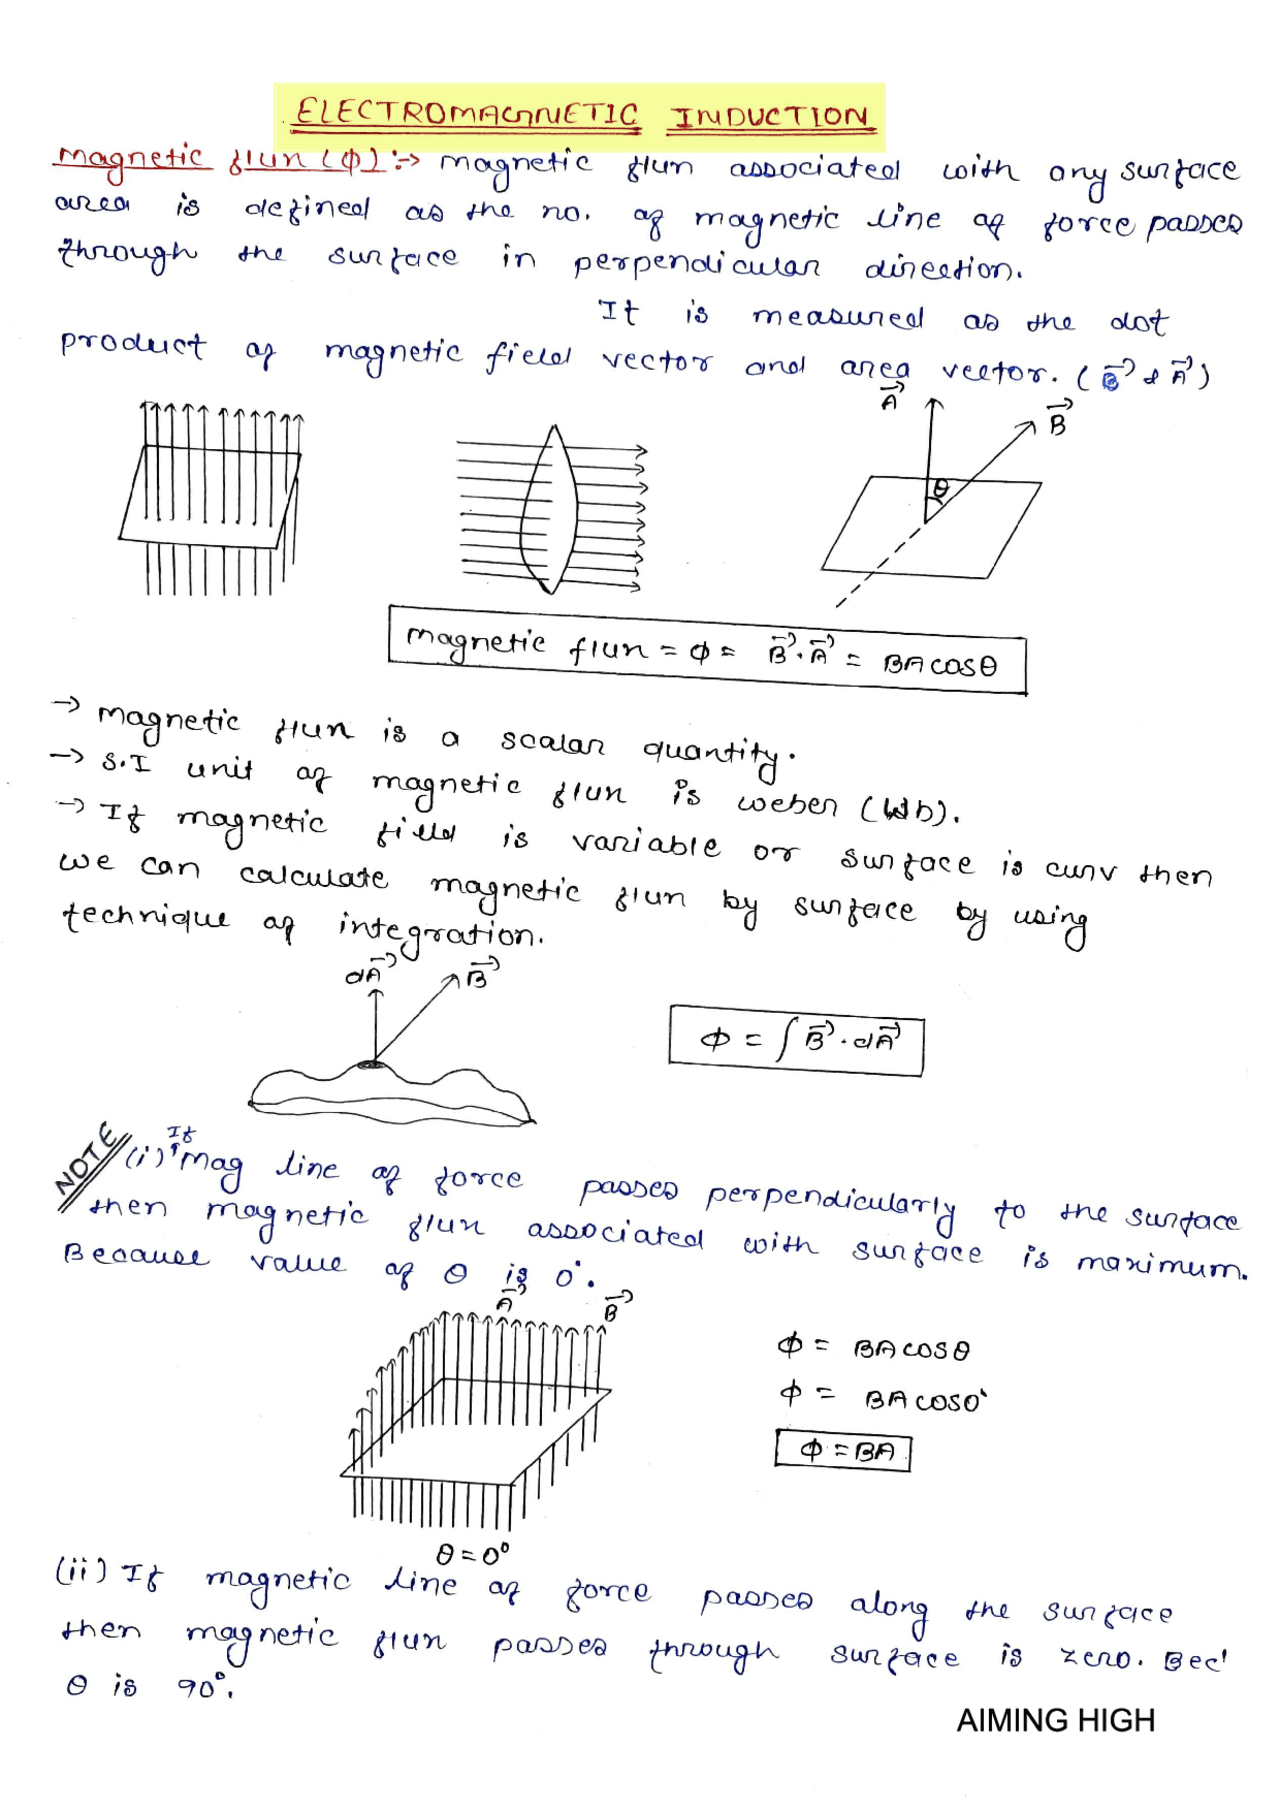 ELECTROMAGNETIC INDUCTION
Magnetic flux (Φ):→ Magnetic flux associated with any surface
area is defined as the no. of magnetic line of force passes
through the surface in perpendicular direction.
It is measured as the dot
product of magnetic field vector and area vector. (B⃗ & A⃗)
A⃗
B⃗
θ
Magnetic flux = Φ = B⃗.A⃗ = BA cosθ
→ Magnetic flux is a scalar quantity.
→ S.I unit of magnetic flux is weber (Wb).
→ If magnetic field is variable or surface is curv then
we can calculate magnetic flux by surface by using
technique of integration.
dA⃗
B⃗
Φ = ∫ B⃗ . dA⃗
NOTE
(i) If Mag line of force passes perpendicularly to the surface
then magnetic flux associated with surface is maximum.
Because value of θ is 0°.
A⃗
B⃗
Φ = BA cosθ
Φ = BA cos0°
Φ = BA
θ = 0°
(ii) If magnetic line of force passes along the surface
then magnetic flux passes through surface is zero. Bec'
θ is 90°.
AIMING HIGH